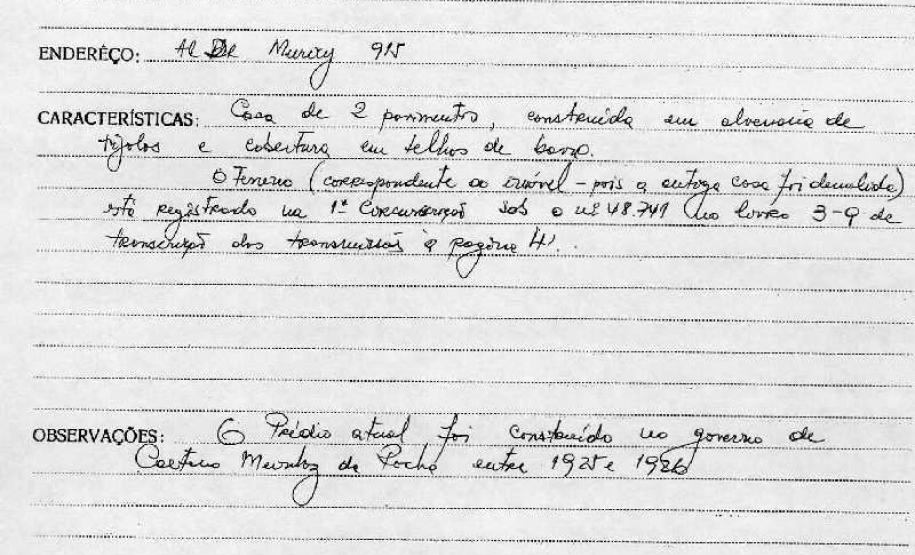 ENDERÊÇO: Al Dr Muricy 915
CARACTERÍSTICAS: Casa de 2 pavimentos, construída em alvenaria de
tijolos e cobertura em telhas de barro.
O Terreno (correspondente ao imóvel - pois a antiga casa foi demolida)
está registrado na 1ª Circunscrição sob o nº 48.749 no livro 3-Q de
transcrição das transmissões à página 41.
OBSERVAÇÕES: O Prédio atual foi construído no governo de
Caetano Munhoz da Rocha entre 1925 e 1926